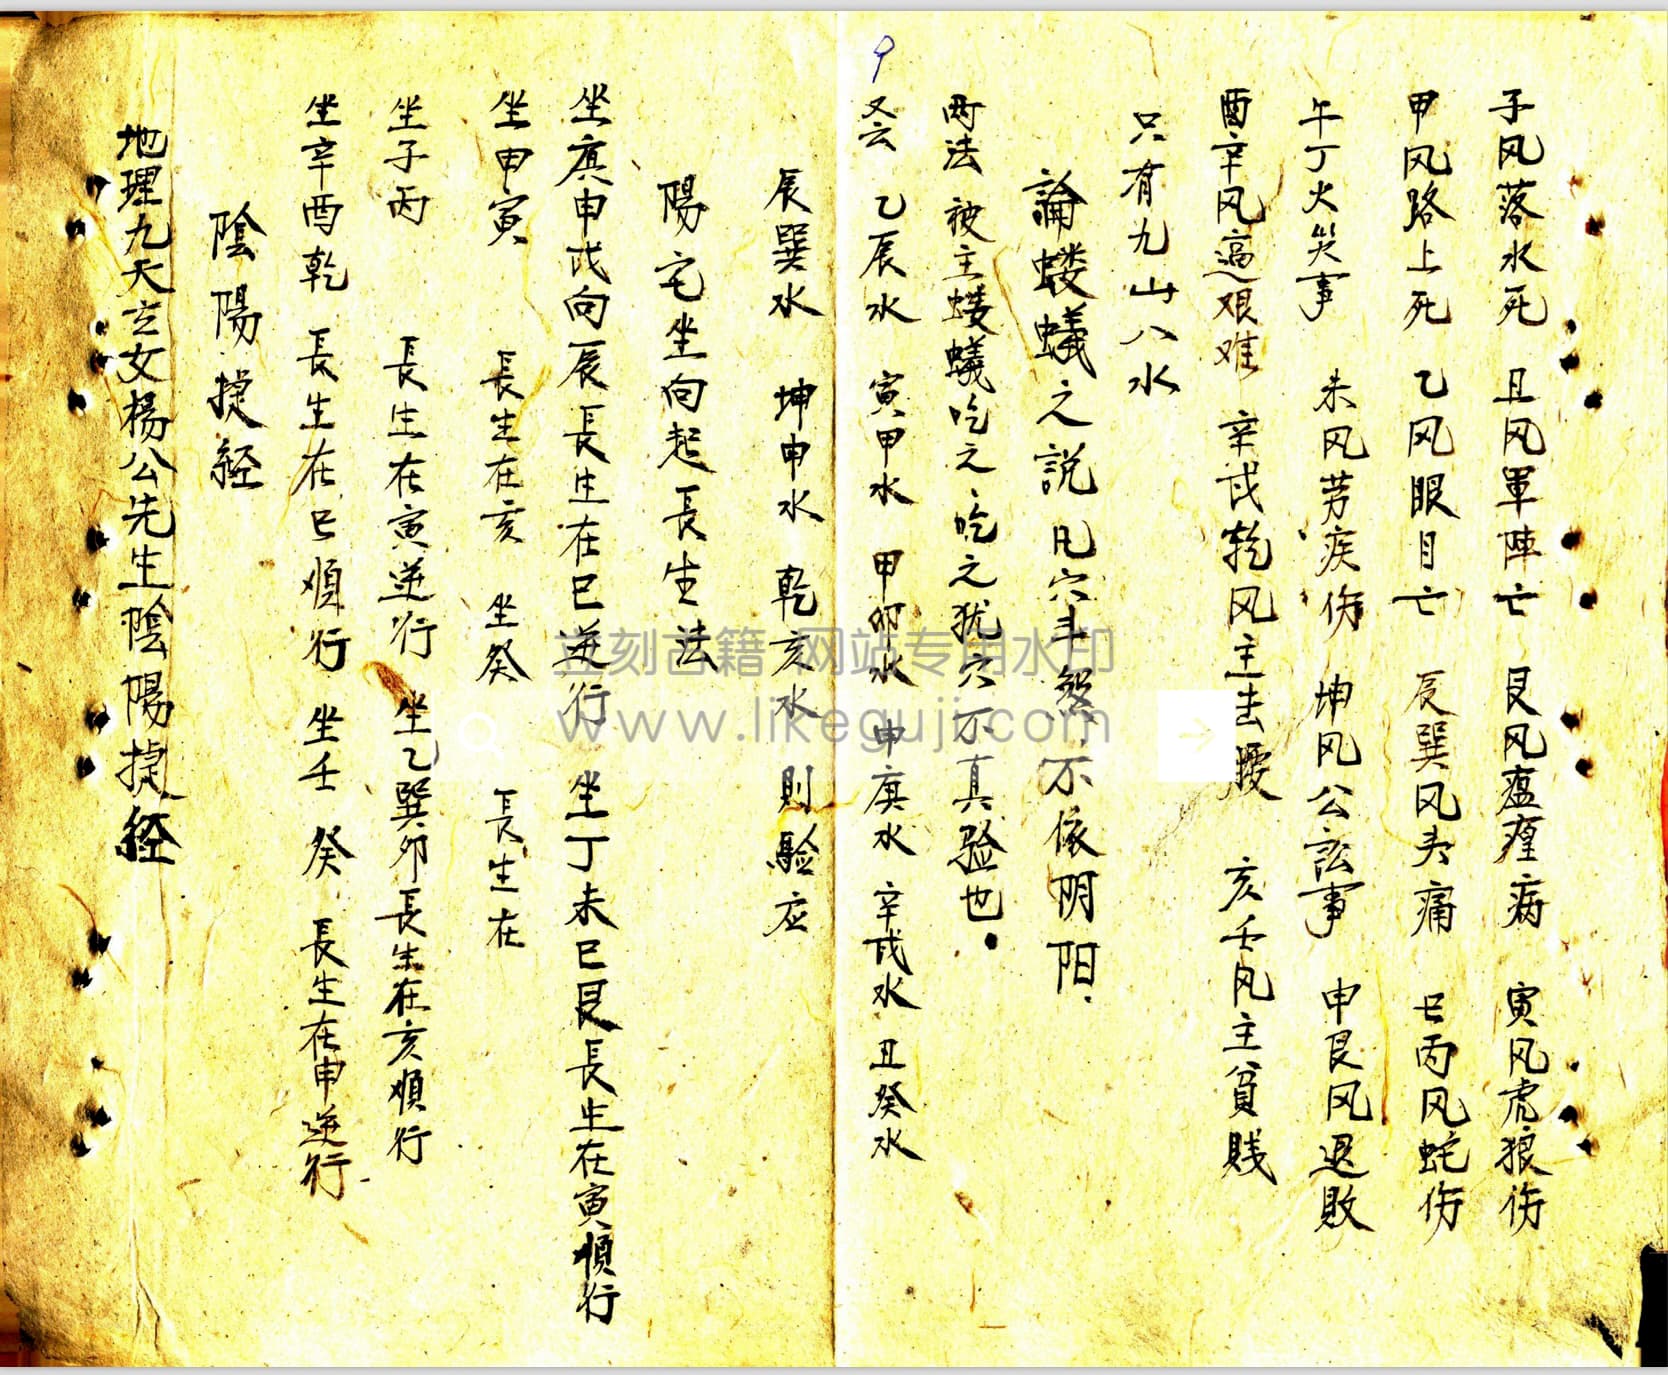 子风落水死 丑风軍陣亡 艮风瘟㾮病 寅风虎狼伤
甲风路上死 乙风眼目亡 辰巽风头痛 巳丙风蛇伤
午丁火災事 未风劳疾伤 坤风公訟事 申艮风退敗
酉辛风逼艰难 辛戌乾风主 腰 亥壬风主貧贱
只有九山八水
論螻蟻之説 凡穴斗煞、不依阴阳、
两法 被主螻蟻吃之、吃之犹穴不真验也。
9
又云 乙辰水 寅甲水 甲卯水 申庚水 辛戌水 丑癸水
辰巽水 坤申水 乾亥水 則驗应
陽宅坐向起長生法
坐庚申戌向辰長生在巳逆行 坐丁未巳艮長生在寅順行
坐申寅 長生在亥 坐癸 長生在
坐子丙 長生在寅逆行 坐乙巽卯長生在亥順行
坐辛酉乾 長生在巳順行 坐壬 癸 長生在申逆行
陰陽捷經
地理九天玄女楊公先生陰陽捷經
立刻古籍 网站专用水印
www.likeguji.com